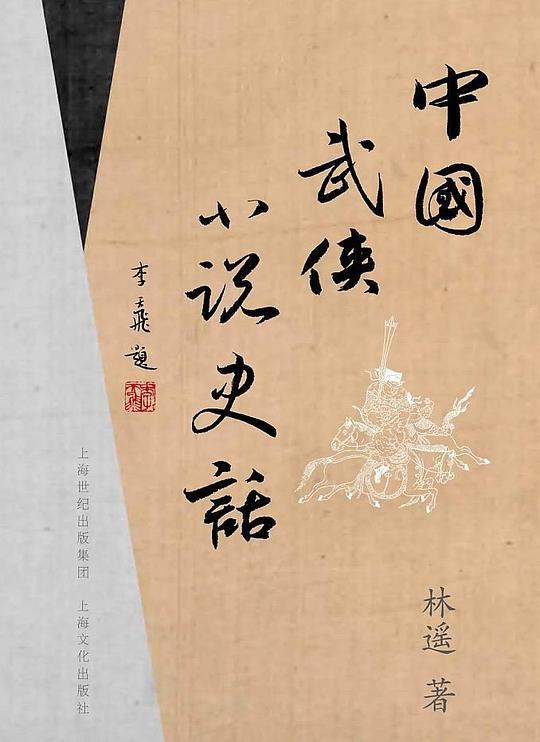 中國
武俠
小说史話
李天飛題
上海世纪出版集团 上海文化出版社
林遥 著